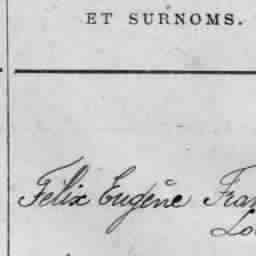 ET SURNOMS.
Félix Eugène Fran
Lo